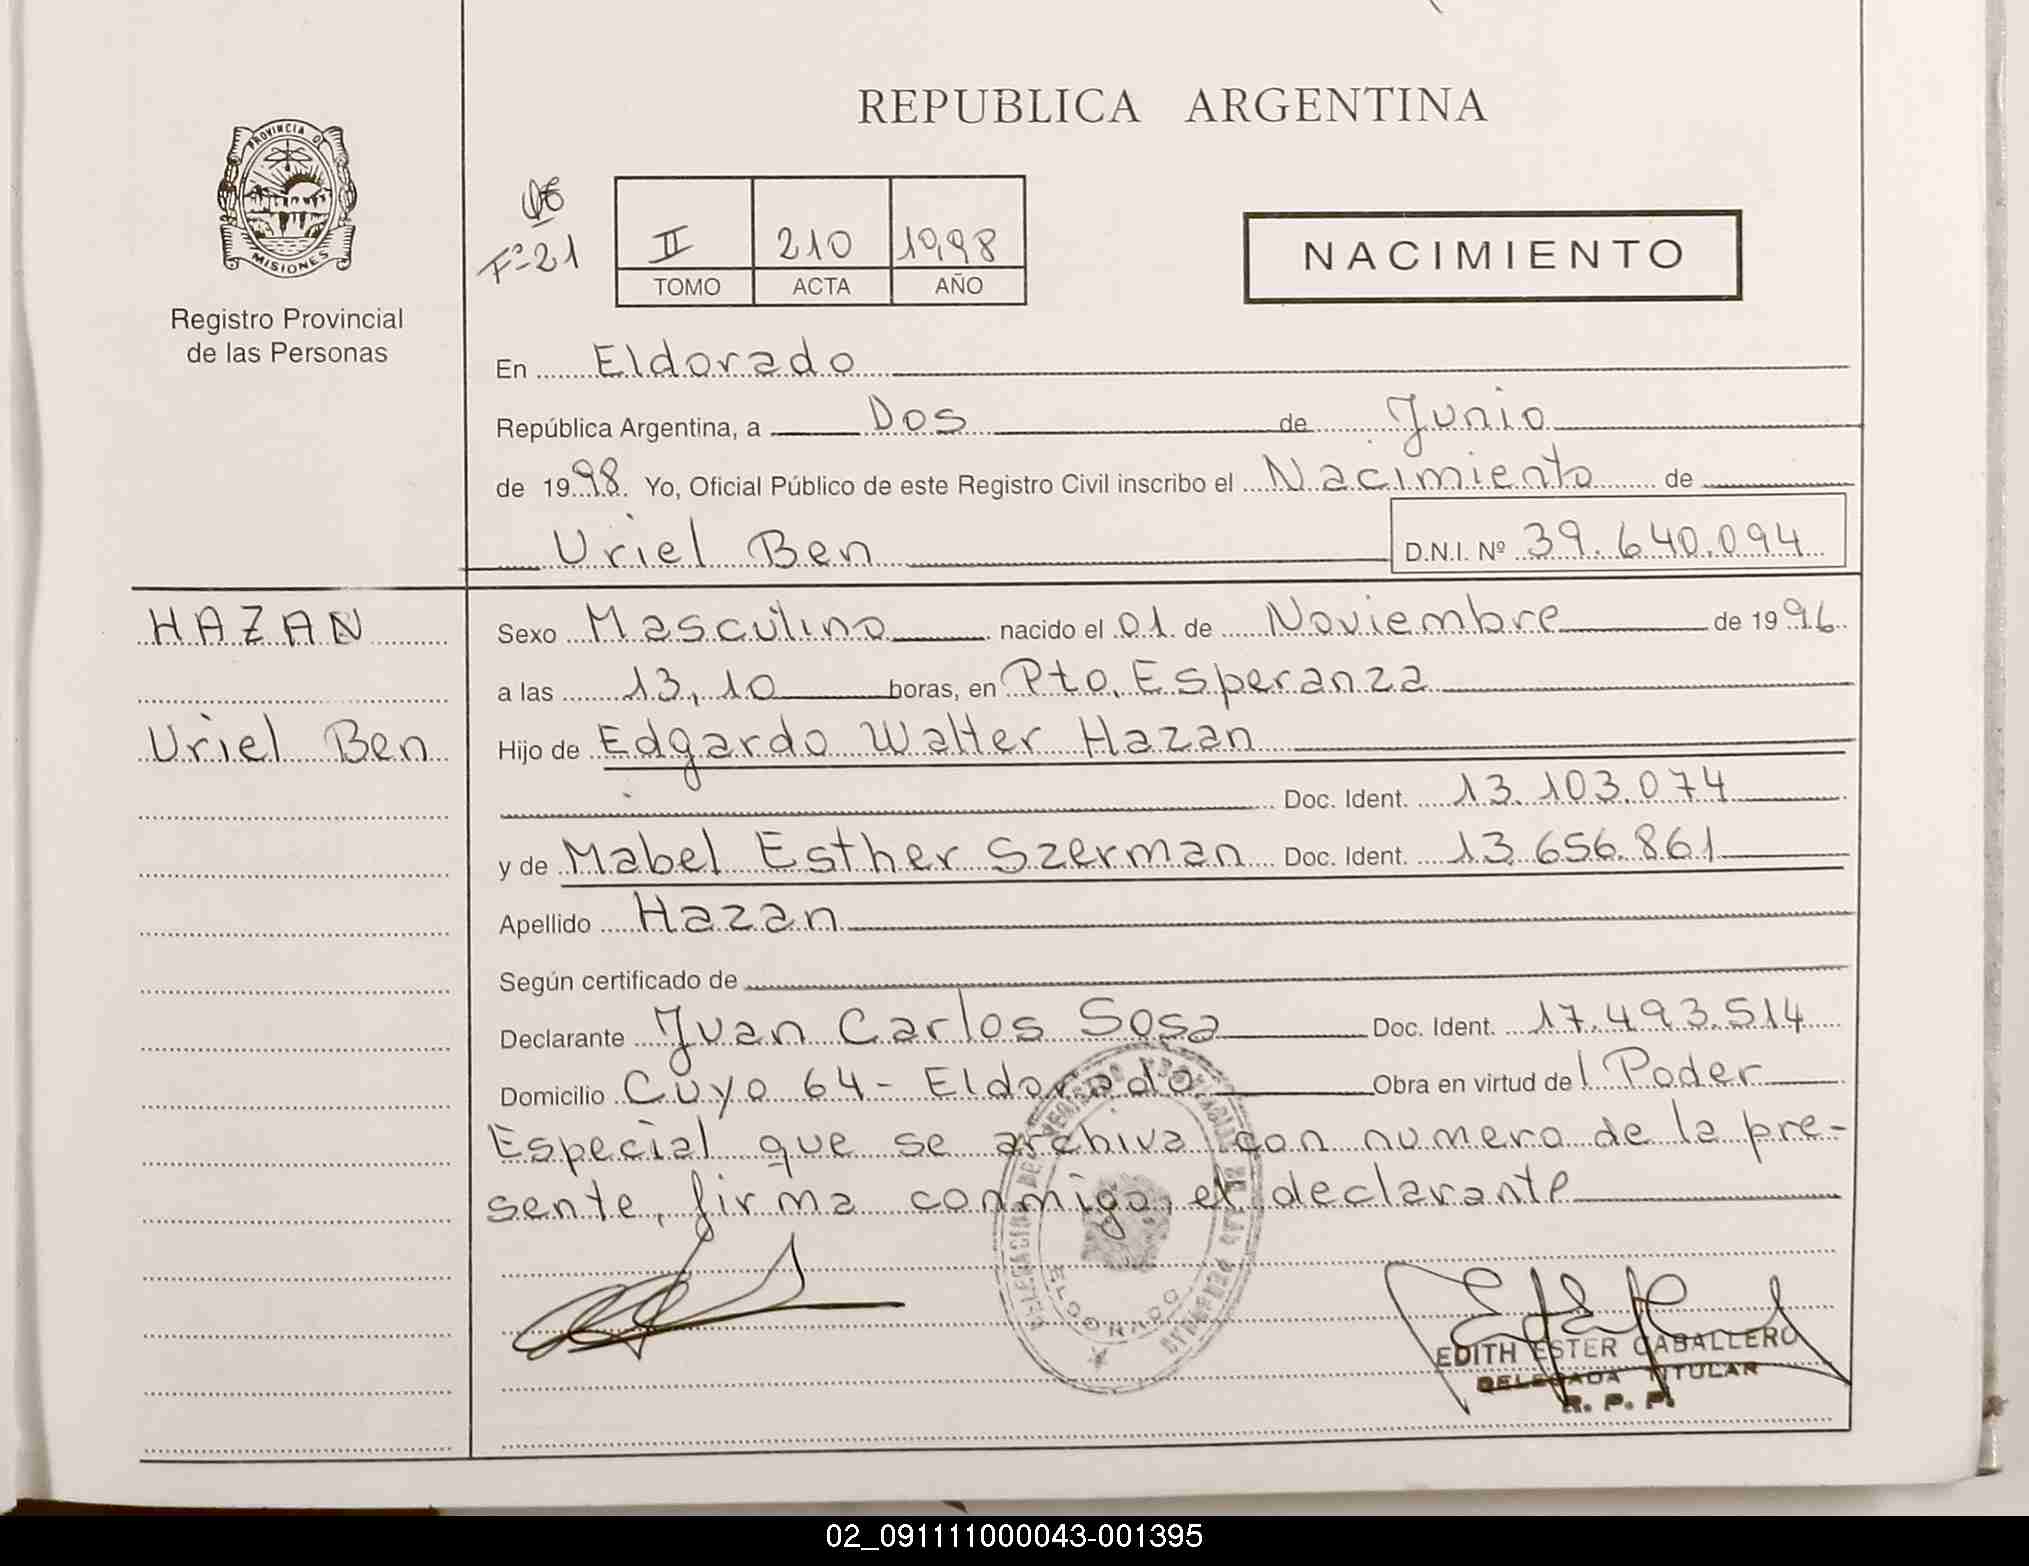 REPUBLICA ARGENTINA
PROVINCIA DE
MISIONES
Registro Provincial
de las Personas
Fº-21
II 210 1998
TOMO ACTA AÑO
NACIMIENTO
En Eldorado
República Argentina, a Dos de Junio
de 1998. Yo, Oficial Público de este Registro Civil inscribo el Nacimiento de
Uriel Ben D.N.I. Nº 39.640.094
HAZAN
Uriel Ben
Sexo Masculino nacido el 01. de Noviembre de 1996
a las 13,10 horas, en Pto. Esperanza
Hijo de Edgardo Walter Hazan
Doc. Ident. 13.103.074
y de Mabel Esther Szerman Doc. Ident. 13.656.861
Apellido Hazan
Según certificado de
Declarante Juan Carlos Sosa Doc. Ident. 17.493.514
Domicilio Cuyo 64 - Eldorado Obra en virtud del Poder
Especial que se archiva con numero de la pre-
sente, firma conmigo, el declarante
EDITH ESTER CABALLERO
DELEGADA TITULAR
R. P. P.
02_091111000043-001395